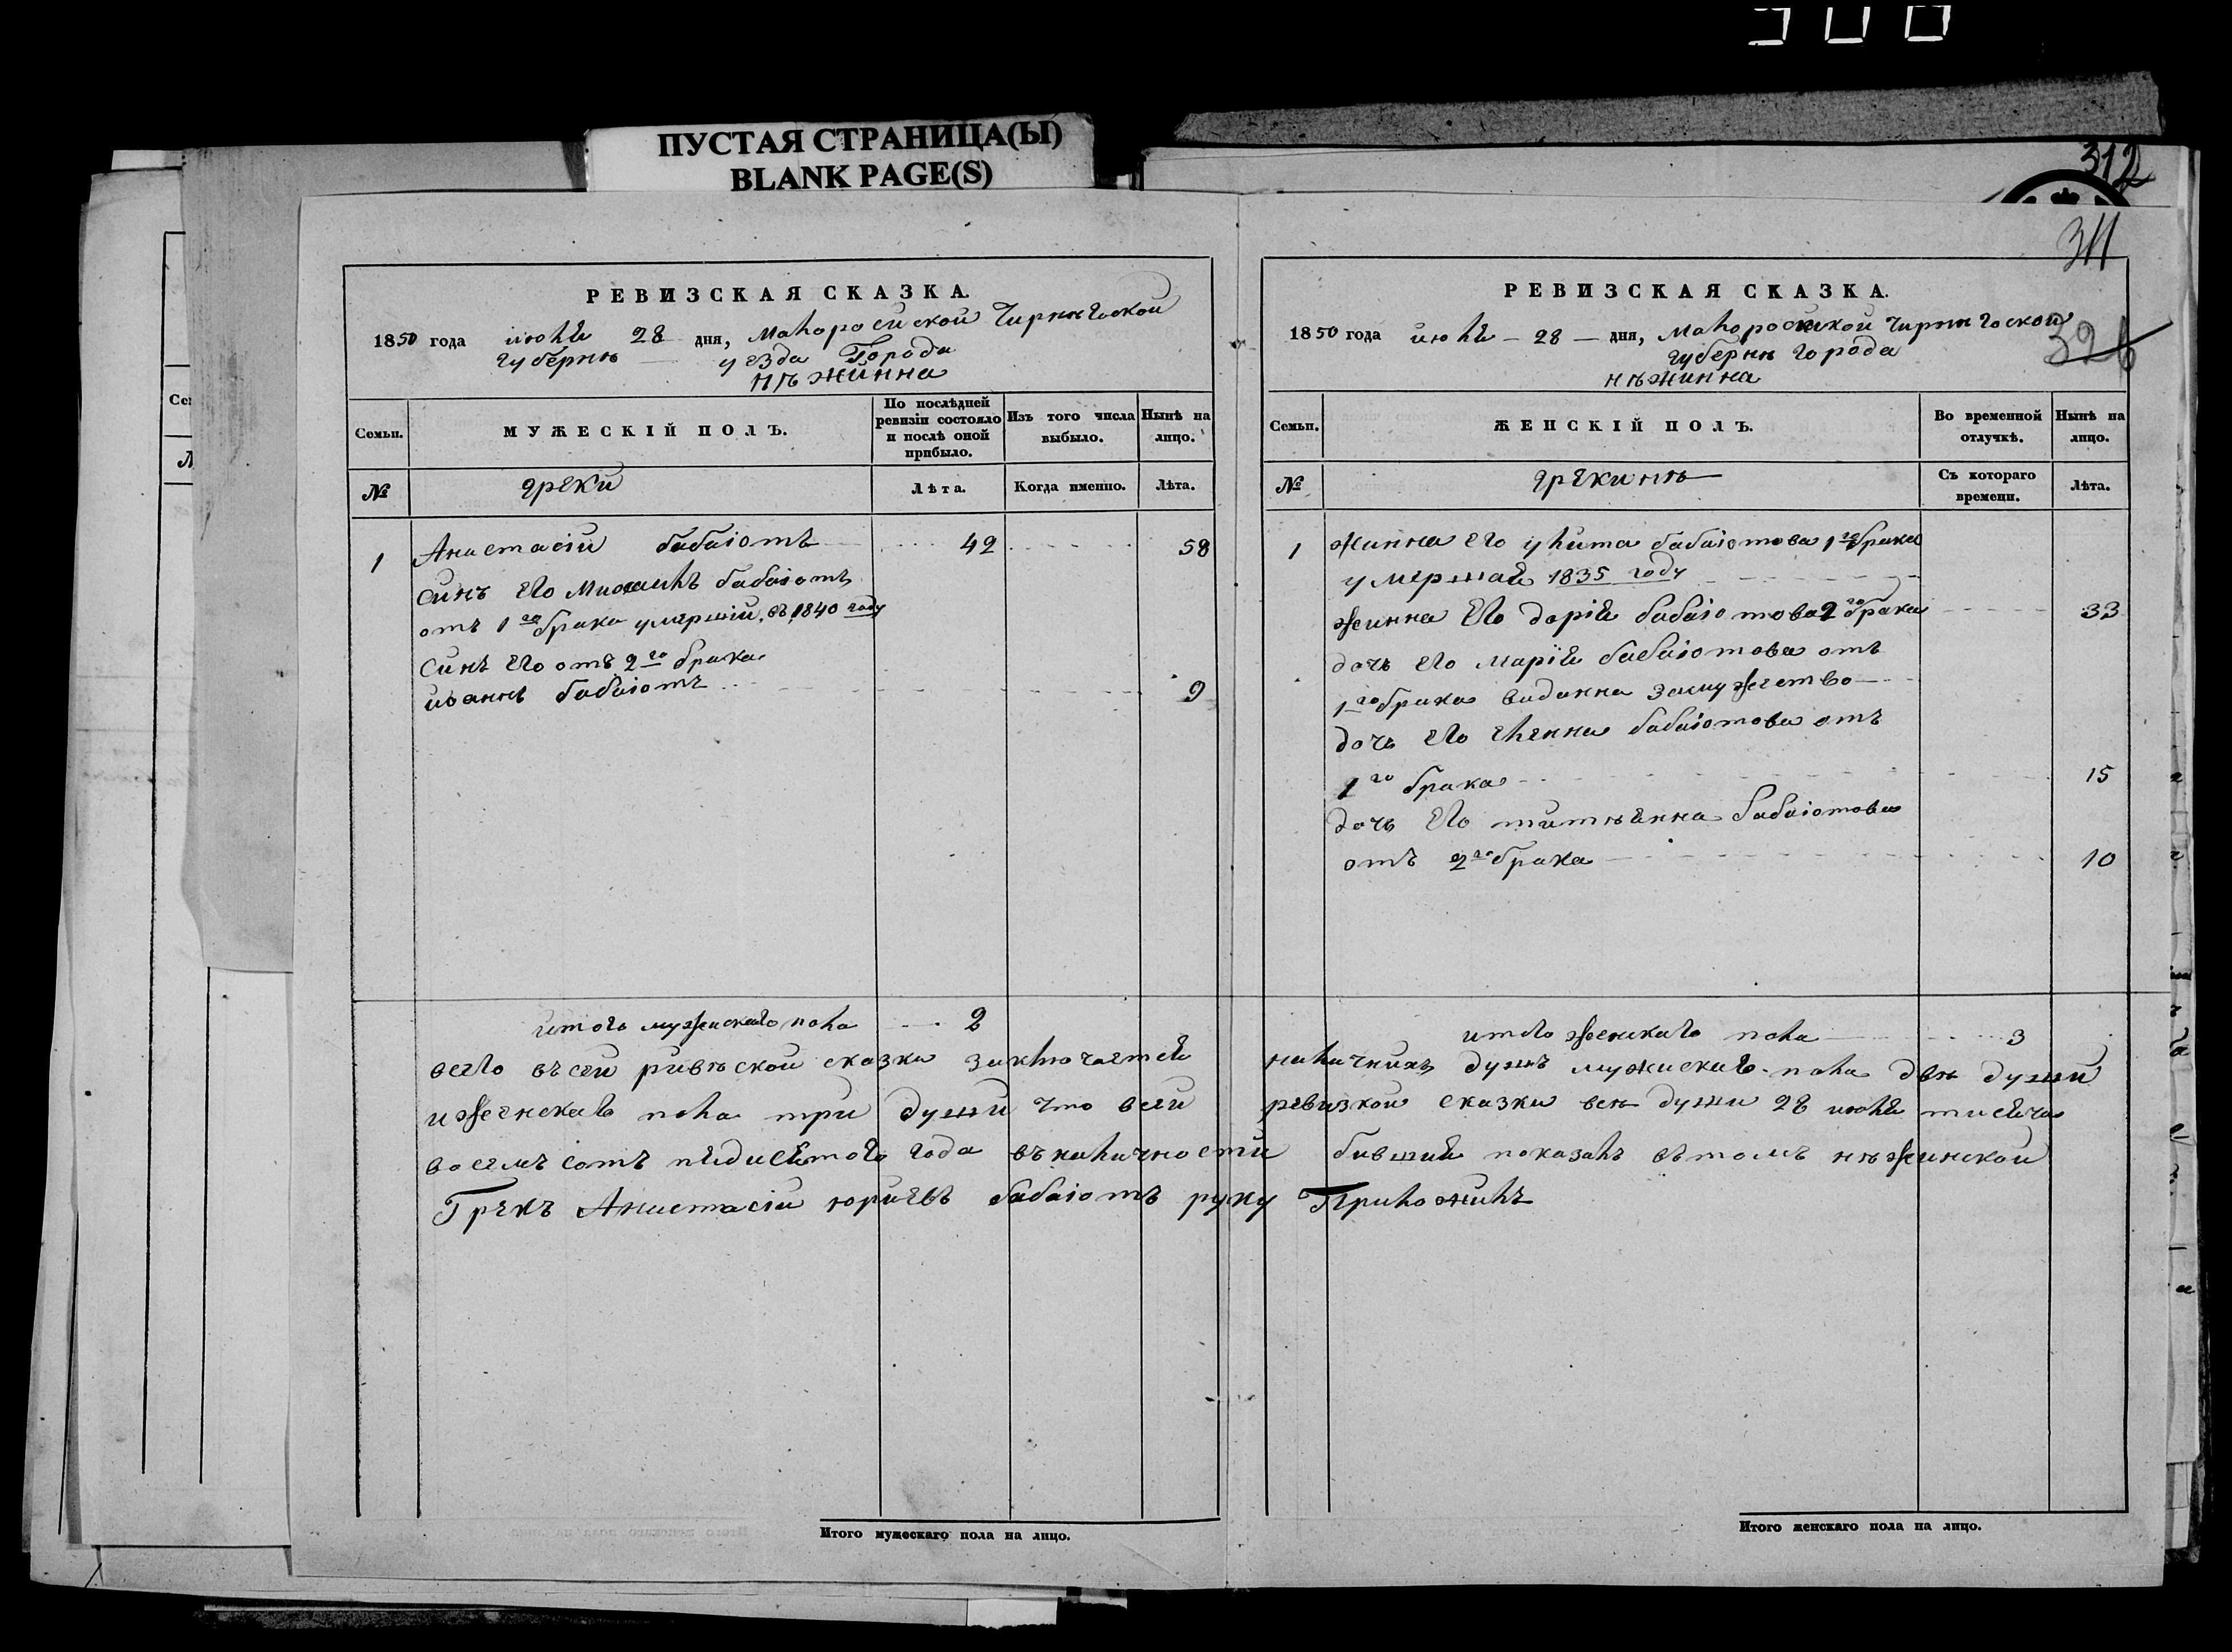 ПУСТАЯ СТРАНИЦА(Ы)
BLANK PAGE(S)
312
311
326
РЕВИЗСКАЯ СКАЗКА.
1850 года июля 28 дня, Малоросийской Чирниговской
губерни уезда Города
Нѣжинна
Семьи.
МУЖЕСКІЙ ПОЛЪ.
По послѣдней ревизіи состояло и послѣ оной прибыло.
Изъ того числа выбыло.
Нынѣ на лицо.
№
греки
Лѣта.
Когда именно.
Лѣта.
1 Анастасій бабаіотъ 42 58
Синъ его Михаилъ бабаіотъ
отъ 1го брака умершій въ 1840 году
Синъ его отъ 2го брака
иоаннъ бабаіотъ 9
итого мужескаго пола 2
РЕВИЗСКАЯ СКАЗКА.
1850 года июля 28 дня, Малоросикой Чирниговской
губерни города
нѣжинна
Семьи.
ЖЕНСКІЙ ПОЛЪ.
Во временной отлучкѣ.
Нынѣ на лицо.
№
грекинѣ
Съ котораго времени.
Лѣта.
1 жинна его улита бабаіотова 1го брака
умершая 1835 году
жинна его дарія бабаіотова 2го брака 33
дочь его марія бабаіотова отъ
1го брака видинна замужество
дочь его еленна бабаіотова отъ
1го брака 15
дочь его титѣянна бабаіотова
отъ 2го брака 10
итого женскаго пола 3
всего въ сей ривѣской сказки заключаетея наличнихъ душъ мужискаго пола двѣ души
и женскаго пола три души что всей ревизкой сказки всѣ души 28 июля тисяча
восемъ сотъ пядисятого года въ наличности бившия показалъ въ томъ нѣжинской
Грекъ Анастасіи юриевъ бабаіотъ руку Приложилъ
Итого мужескаго пола на лицо.
Итого женскаго пола на лицо.